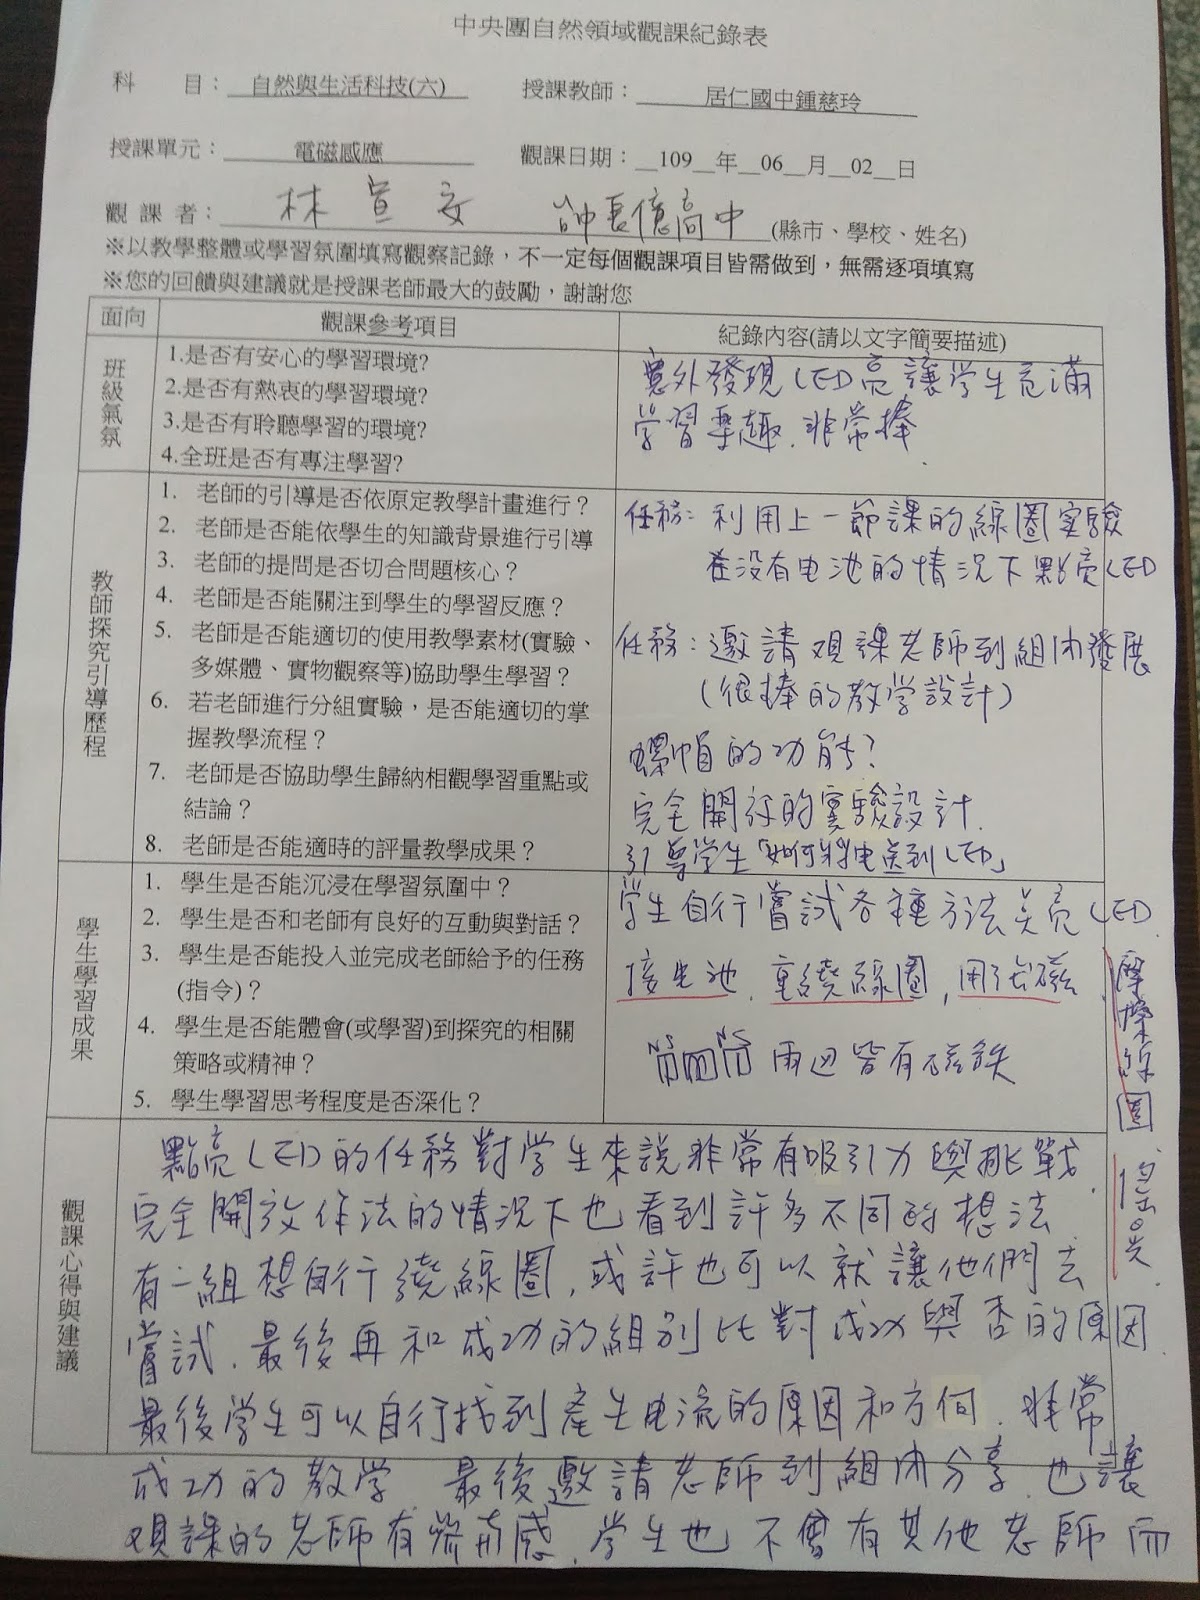 中央團自然領域觀課紀錄表
科 目：自然與生活科技(六) 授課教師：居仁國中鍾慈玲
授課單元：電磁感應 觀課日期：109年06月02日
觀課者：林宣安 帥長億高中(縣市、學校、姓名)
※以教學整體或學習氛圍填寫觀察記錄，不一定每個觀課項目皆需做到，無需逐項填寫
※您的回饋與建議就是授課老師最大的鼓勵，謝謝您
面向 觀課參考項目 紀錄內容(請以文字簡要描述)
班級氣氛
1.是否有安心的學習環境?
2.是否有熱衷的學習環境?
3.是否有聆聽學習的環境?
4.全班是否有專注學習?
意外發現LED亮讓学生充滿
学習樂趣.非常棒.
教師探究引導歷程
1. 老師的引導是否依原定教學計畫進行？
2. 老師是否能依學生的知識背景進行引導
3. 老師的提問是否切合問題核心？
4. 老師是否能關注到學生的學習反應？
5. 老師是否能適切的使用教學素材(實驗、
多媒體、實物觀察等)協助學生學習？
6. 若老師進行分組實驗，是否能適切的掌
握教學流程？
7. 老師是否協助學生歸納相觀學習重點或
結論？
8. 老師是否能適時的評量教學成果？
任務：利用上一節課的線圈实驗
在没有电池的情況下點亮LED
任務：邀請观課老師到組內發展
(很棒的教学設計)
螺帽的功能？
完全開放的實驗設計.
引導学生「如何將电送到LED」
學生學習成果
1. 學生是否能沉浸在學習氛圍中？
2. 學生是否和老師有良好的互動與對話？
3. 學生是否能投入並完成老師給予的任務
(指令)？
4. 學生是否能體會(或學習)到探究的相關
策略或精神？
5. 學生學習思考程度是否深化？
学生自行嘗試各種方法点亮LED.
接电池.重繞線圈,用強磁.
摩擦線圈.
N S N S 兩边皆有磁鉄
觀課心得與建議
點亮LED的任務對学生來說非常有吸引力與挑戰.
完全開放作法的情況下也看到許多不同的想法
有一組想自行繞線圈,或許也可以就讓他們去
嘗試.最後再和成功的組別比對成功與否的原因.
最後学生可以自行找到產生电流的原因和方向.非常
成功的教学 最後邀請老師到組內分享.也讓
观課的老師有參與感.学生也不會有其他老師而